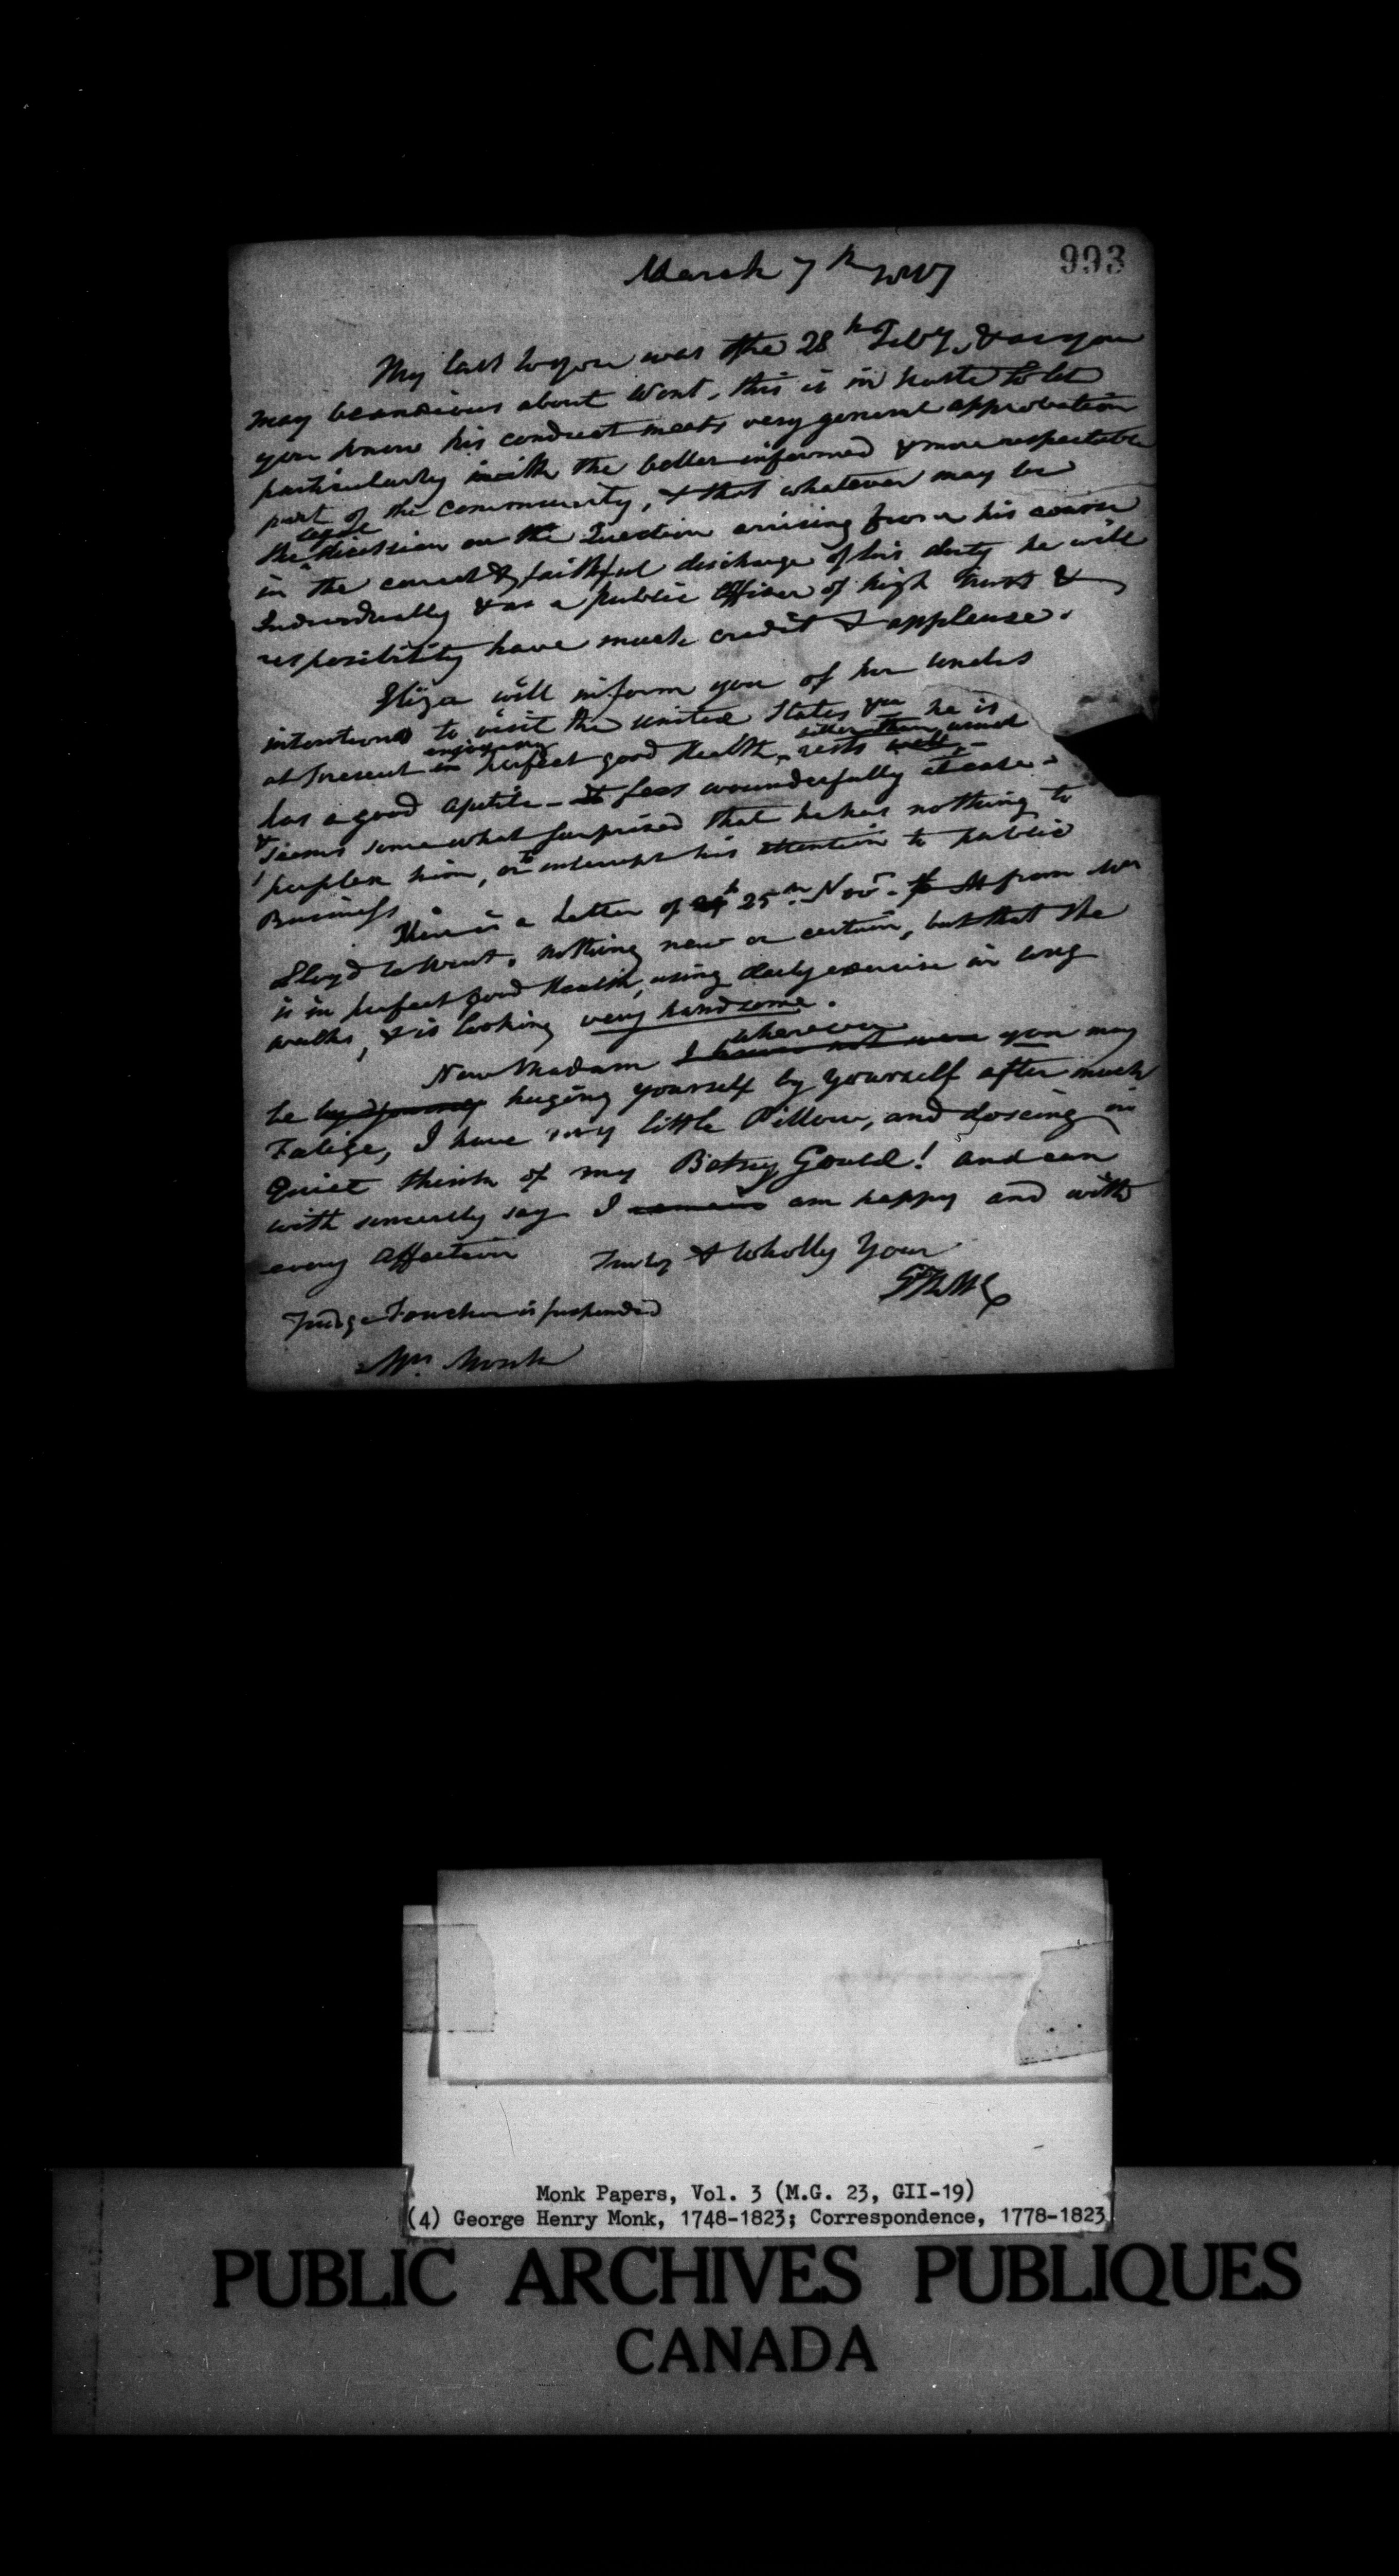 993
March 7th 1817
My last to you was the 28th Feby, & as you
may be anxious about Went, this is in haste to let
you know his conduct meets very general approbation
particularly with the better informed & more respectable
part of the community, & that whatever may be
the legal dicession on the Question arising from his course
in the correct & faithful discharge of his duty he will
Individually & as a public Officer of high trust &
resposibility have much credit & applause.
Eliza will inform you of her Uncles
intentions to visit the United States he is
at present enjoying perfect good Health, rests better than usual
has a good apetite - feels wounderfully at ease -
& seems somewhat surprised that he has nothing to
perplex him, or to interrupt his attention to public
Business
There is a Letter of 25th Novr. from Mr
Lloyd to Went. nothing new or certain, but that she
is in perfect good Health, using daily exercise in long
walks, & is looking very handsome.
Now Madam wherever you may
be huging yourself by yourself after much
Fatige, I have my little Pillow, and doseing in
Quiet think of my Betsy Gould! and can
with sincerity say I am happy and with
every affection Truly & Wholly Your
GHM
Judge Foucher is suspended
Mrs. Monk
Monk Papers, Vol. 3 (M.G. 23, GII-19)
(4) George Henry Monk, 1748-1823; Correspondence, 1778-1823
PUBLIC ARCHIVES PUBLIQUES
CANADA